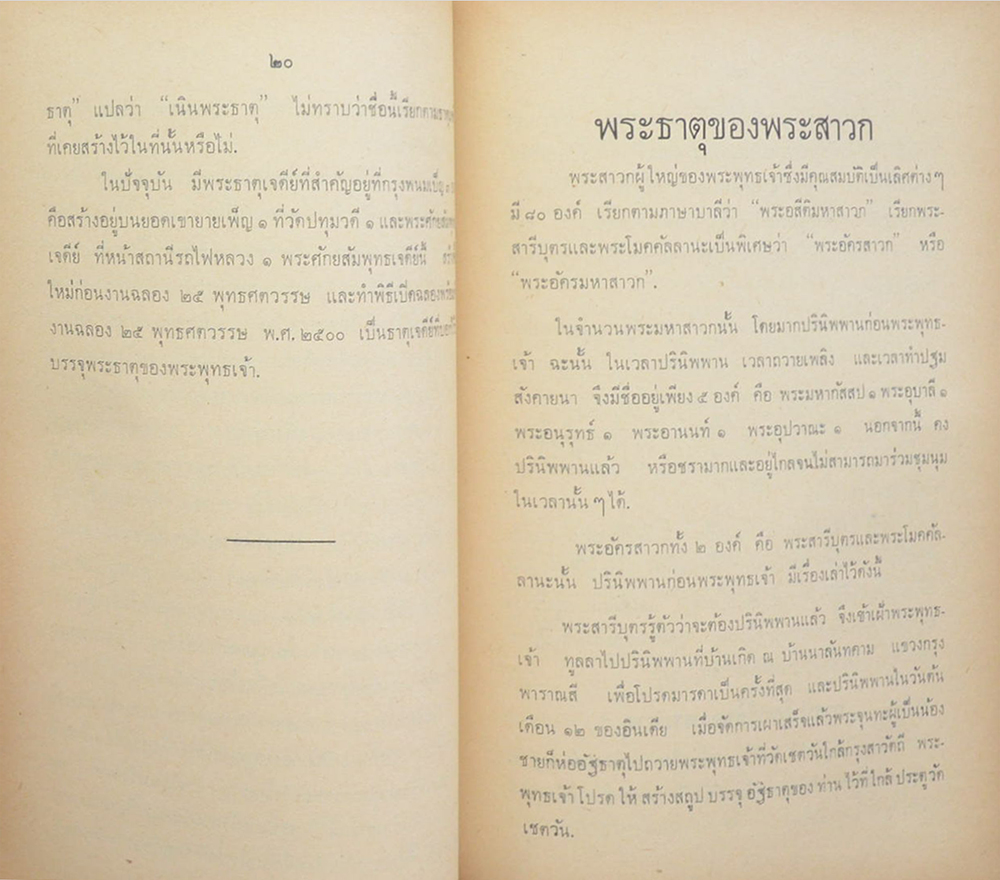 ๒๐
ธาตุ” แปลว่า “เนินพระธาตุ” ไม่ทราบว่าชื่อนี้เรียกตาม
ที่เคยสร้างไว้ในที่นั้นหรือไม่.
ในปัจจุบัน มีพระธาตุเจดีย์ที่สำคัญอยู่ที่กรุงพนมเป็ญ
คือสร้างอยู่บนยอดเขายายเพ็ญ ๑ ที่วัดปทุมวดี ๑ และพระศักย
เจดีย์ ที่หน้าสถานีรถไฟหลวง ๑ พระศักยสัมพุทธเจดีย์นี้
ใหม่ก่อนงานฉลอง ๒๕ พุทธศตวรรษ และทำพิธีเปิดฉลอง
งานฉลอง ๒๕ พุทธศตวรรษ พ.ศ. ๒๕๐๐ เป็นธาตุเจดีย์
บรรจุพระธาตุของพระพุทธเจ้า.
พระธาตุของพระสาวก
พระสาวกผู้ใหญ่ของพระพุทธเจ้าซึ่งมีคุณสมบัติเป็นเลิศต่าง ๆ
มี ๘๐ องค์ เรียกตามภาษาบาลีว่า “พระอสีติมหาสาวก” เรียกพระ-
สารีบุตรและพระโมคคัลลานะเป็นพิเศษว่า “พระอัครสาวก” หรือ
“พระอัครมหาสาวก”.
ในจำนวนพระมหาสาวกนั้น โดยมากปรินิพพานก่อนพระพุทธ-
เจ้า ฉะนั้น ในเวลาปรินิพพาน เวลาถวายเพลิง และเวลาทำปฐม
สังคายนา จึงมีชื่ออยู่เพียง ๕ องค์ คือ พระมหากัสสป ๑ พระอุบาลี ๑
พระอนุรุทธ์ ๑ พระอานนท์ ๑ พระอุปวาณะ ๑ นอกจากนี้ คง
ปรินิพพานแล้ว หรือชรามากและอยู่ไกลจนไม่สามารถมาร่วมชุมนุม
ในเวลานั้น ๆ ได้.
พระอัครสาวกทั้ง ๒ องค์ คือ พระสารีบุตรและพระโมคคัล-
ลานะนั้น ปรินิพพานก่อนพระพุทธเจ้า มีเรื่องเล่าไว้ดังนี้
พระสารีบุตรรู้ตัวว่าจะต้องปรินิพพานแล้ว จึงเข้าเฝ้าพระพุทธ-
เจ้า ทูลลาไปปรินิพพานที่บ้านเกิด ณ บ้านนาลันทคาม แขวงกรุง
พาราณสี เพื่อโปรดมารดาเป็นครั้งที่สุด และปรินิพพานในวันต้น
เดือน ๑๒ ของอินเดีย เมื่อจัดการเผาเสร็จแล้วพระจุนทะผู้เป็นน้อง
ชายก็ห่ออัฐิธาตุไปถวายพระพุทธเจ้าที่วัดเชตวันใกล้กรุงสาวัตถี พระ-
พุทธเจ้าโปรดให้สร้างสถูปบรรจุอัฐิธาตุของท่านไว้ที่ใกล้ประตูวัด
เชตวัน.